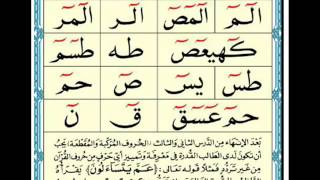 الٓمٓ الٓمٓصٓ الٓر الٓمٓر
كٓهيعٓصٓ طه طسٓمٓ
طسٓ يسٓ صٓ حمٓ
حمٓ عٓسٓقٓ قٓ نٓ
بَعْدَ الإِنْتِهَاءِ مِنَ الدَّرْسِ الثَّانِي وَالثَّالِثِ (الحُرُوفِ المُرَكَّبَةِ وَالمُقَطَّعَةِ) يَجِبُ
أَنْ تَكُونَ لَدَى الطَّالِبِ القُدْرَةُ فِي مَعْرِفَةِ وَتَمْيِيزِ أَيِّ حَرْفٍ مِنْ حُرُوفِ القُرْآنِ
مِنْ غَيْرِ تَرَدُّدٍ فَمَثَلاً قَوْلُهُ تَعَالَى: (عَمَّ يَتَسَاءَلُونَ) يَقْرَأُ